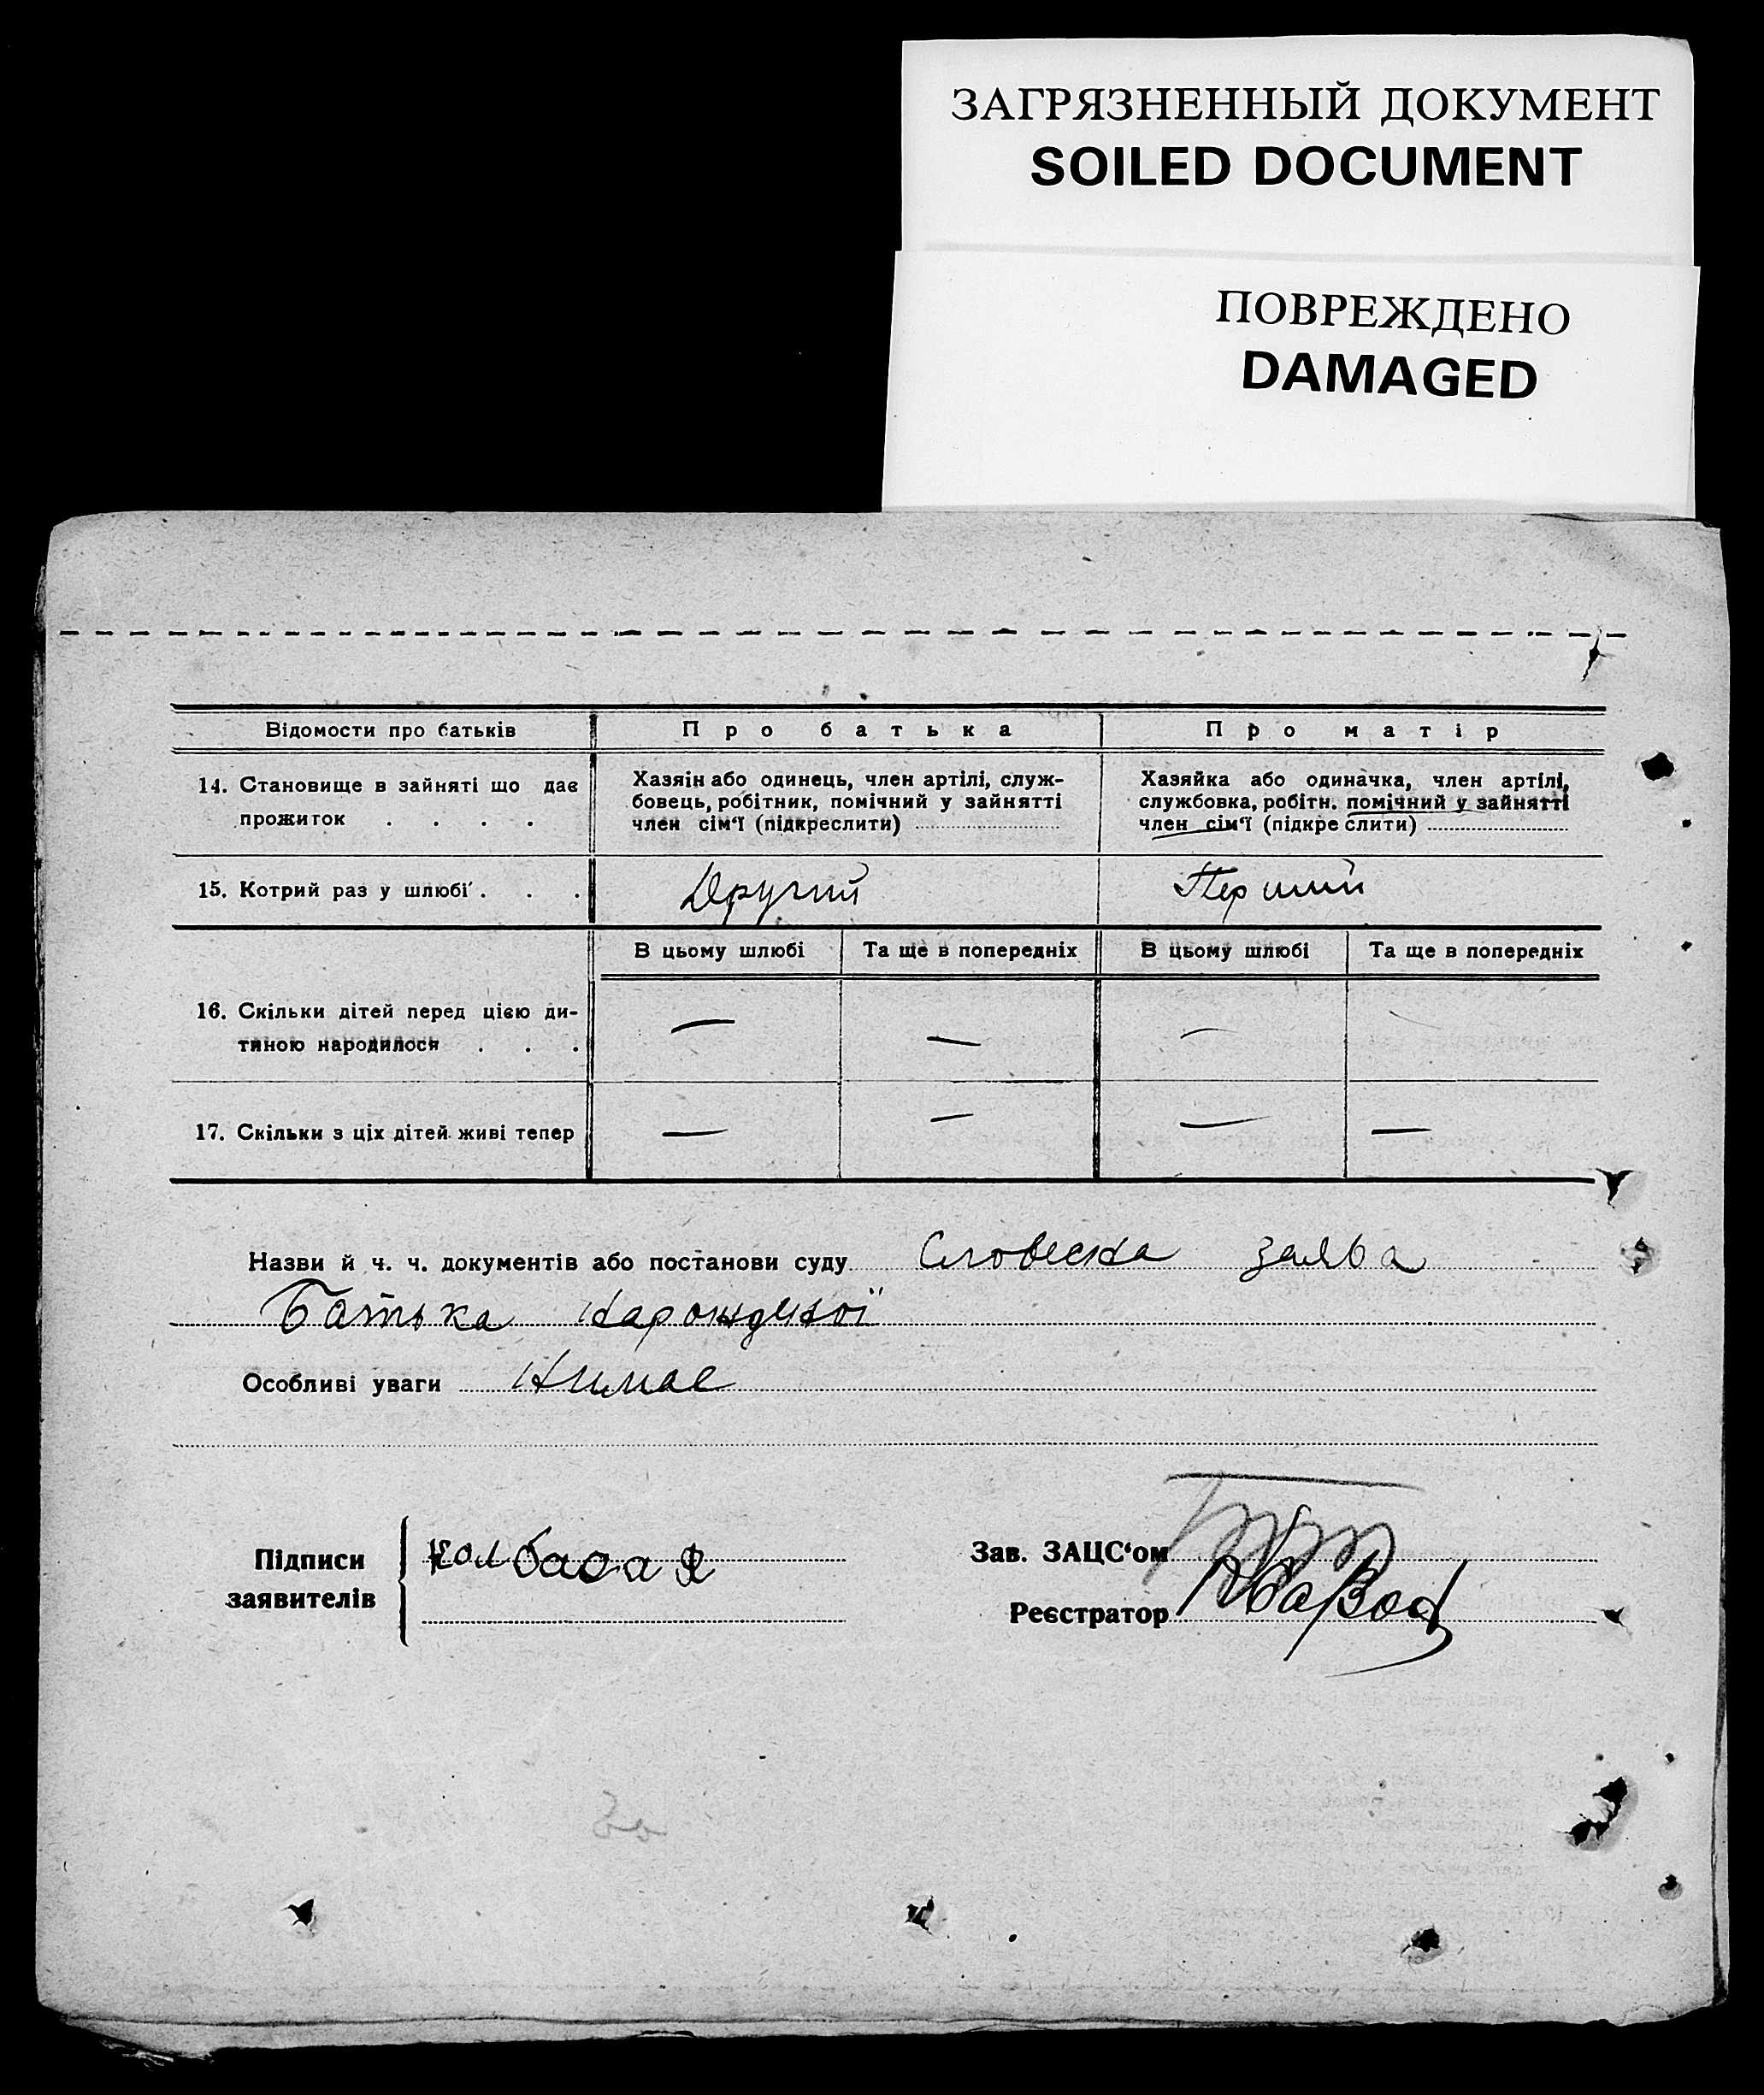 ЗАГРЯЗНЕННЫЙ ДОКУМЕНТ
SOILED DOCUMENT
ПОВРЕЖДЕНО
DAMAGED
Відомости про батьків Про батька Про матір
14. Становище в зайняті що дає прожиток . . . .
Хазяін або одинець, член артілі, служ-
бовець, робітник, помічний у зайнятті
член сім‘ї (підкреслити)
Хазяйка або одиначка, член артілі,
службовка, робітн. помічний у зайнятті
член сім‘ї (підкреслити)
15. Котрий раз у шлюбі . . . Другий Перший
В цьому шлюбі Та ще в попередніх В цьому шлюбі Та ще в попередніх
16. Скільки дітей перед цією ди-
тиною народилося . . . — — — —
17. Скільки з ціх дітей живі тепер — — — —
Назви й ч. ч. документів або постанови суду Словесна заява
Батька народженої
Особливі уваги Нимає
Підписи
заявителів
Колбаса Я
Зав. ЗАЦС‘ом
Реєстратор